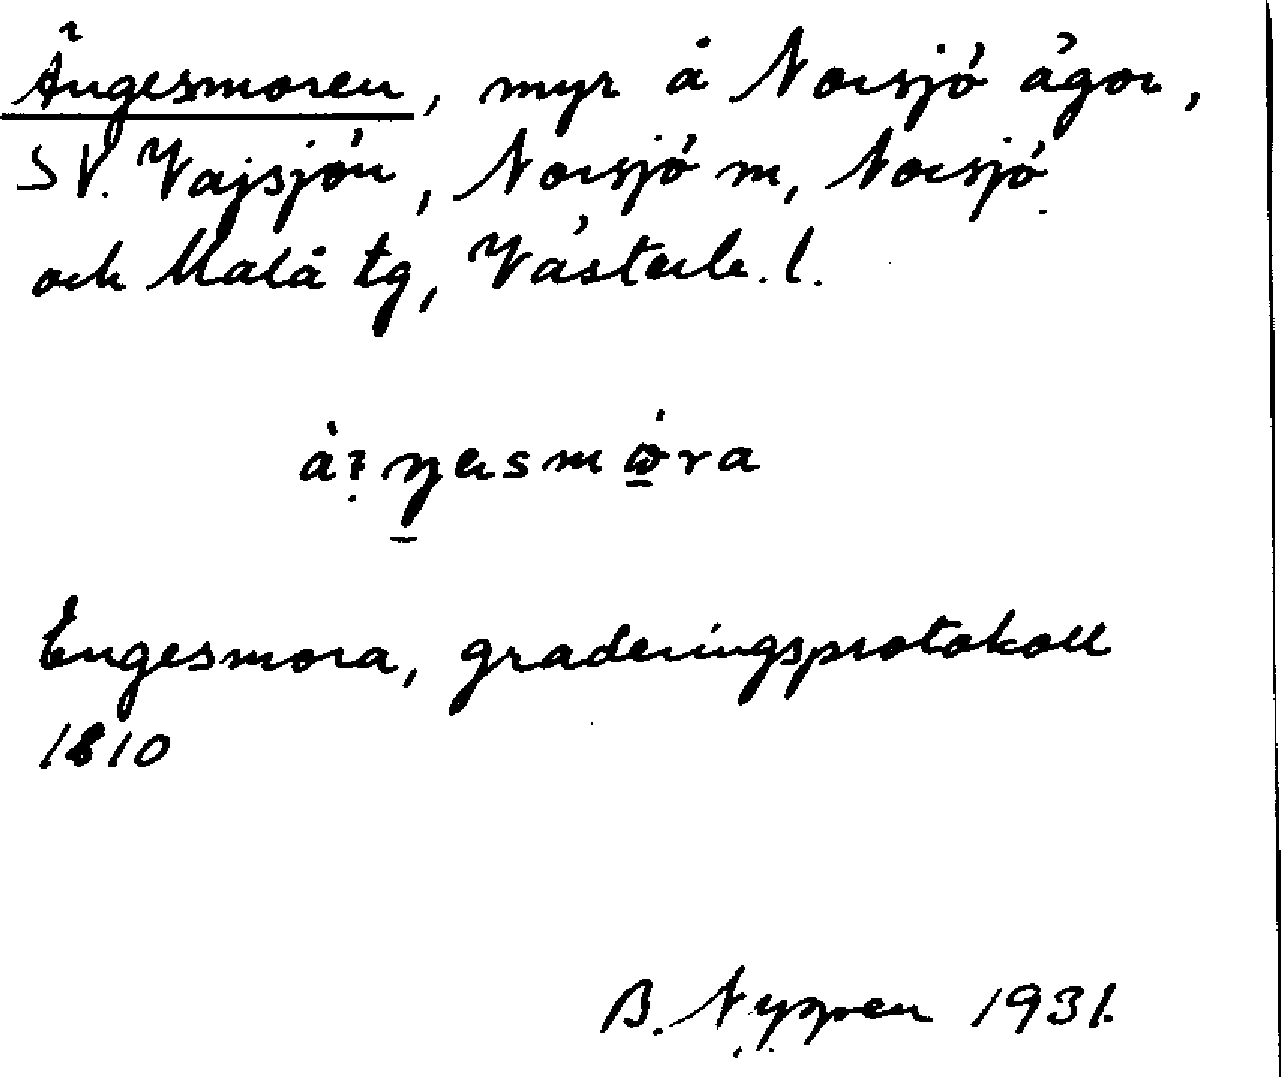 Ängesmoren, myr å Norsjö ägor,
SV. Vajsjön, Norsjö m, Norsjö
och Malå tg, Västerb. l.
Engesmora, graderingsprotokoll
1810
B. 1931.